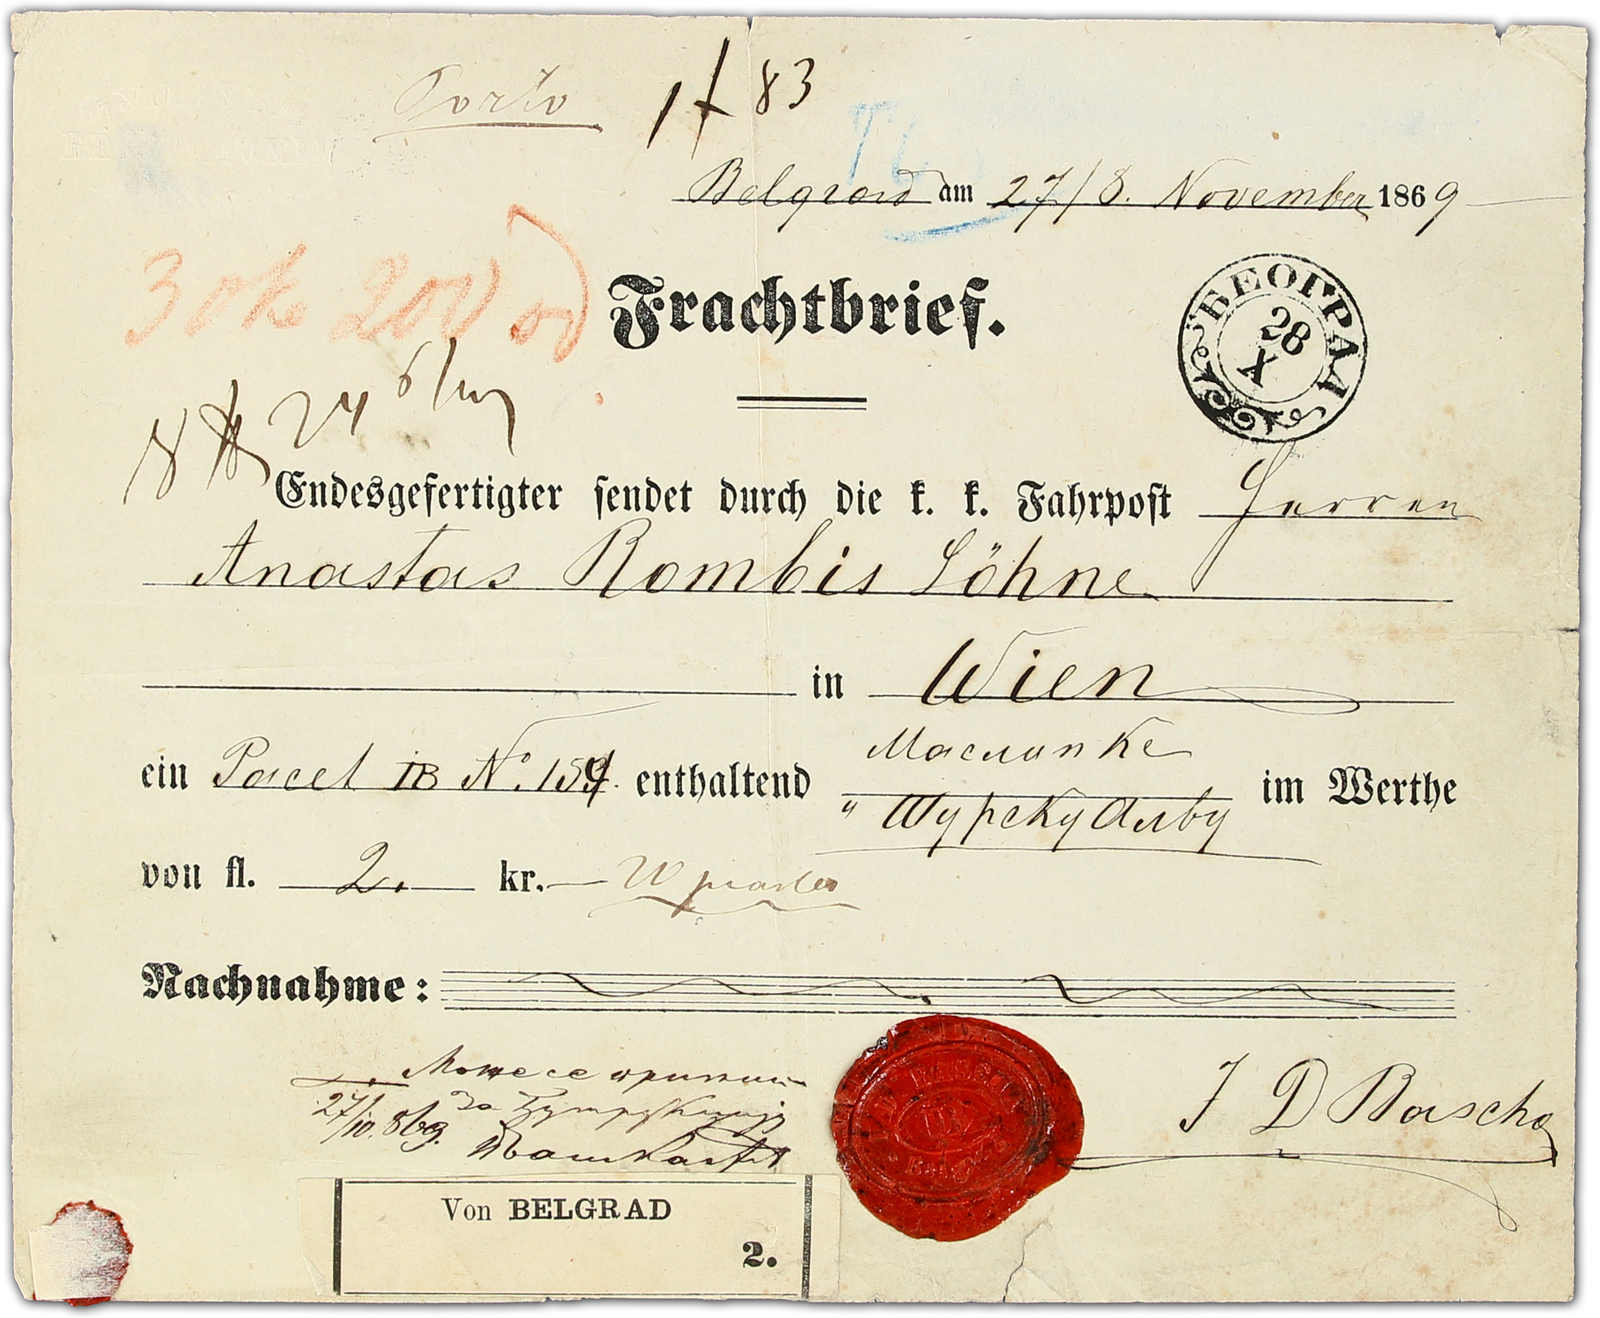 Porto 1 f 83
Belgrad am 27/8. November 1869
30ko 200
Frachtbrief.
БЕОГРАД
28
X
8 24
Endesgefertigter sendet durch die k. k. Fahrpost Herren
Anastas Rombis Söhne
in Wien
ein Pacel IB No. 159. enthaltend Маслинке
im Werthe
von fl. 2. kr.
Nachnahme:
Може се
27/10. 869. За
J D Bascha
Von BELGRAD
2.